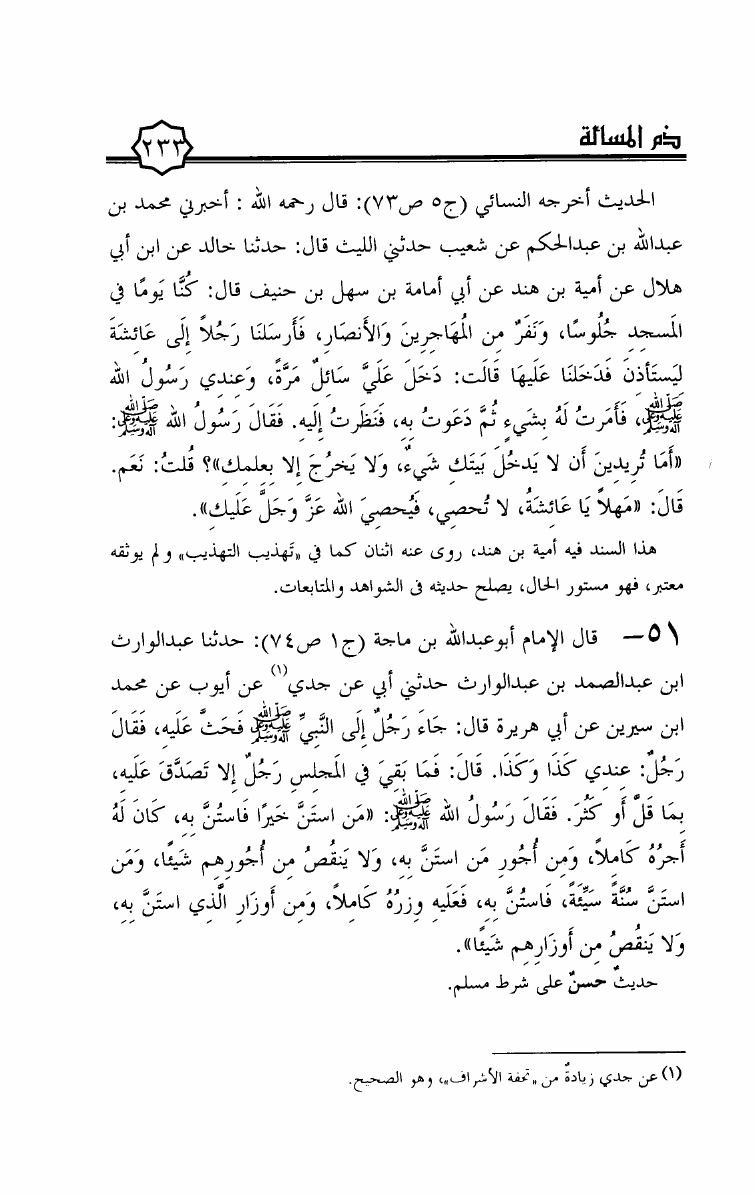 ذم المسالة
٢٣٣
الحديث أخرجه النسائي (ج٥ ص٧٣): قال رحمه الله : أخبرني محمد بن
عبدالله بن عبدالحكم عن شعيب حدثني الليث قال: حدثنا خالد عن ابن أبي
هلال عن أمية بن هند عن أبي أمامة بن سهل بن حنيف قال: كُنَّا يَومًا في
المَسجِدِ جُلُوسًا، وَنَفَرٌ مِن المُهَاجِرِينَ وَالأَنصَارِ، فَأَرسَلنَا رَجُلاً إلَى عَائِشَةَ
لِيَستَأذِنَ فَدَخَلنَا عَلَيهَا قَالَت: دَخَلَ عَلَيَّ سَائِلٌ مَرَّةً، وَعِندِي رَسُولُ الله
ﷺ، فَأَمَرتُ لَهُ بِشَيءٍ ثُمَّ دَعَوتُ بِهِ، فَنَظَرتُ إلَيهِ. فَقَالَ رَسُولُ الله ﷺ:
«أَمَا تُرِيدِينَ أَن لا يَدخُلَ بَيتَكِ شَيءٌ، وَلا يَخرُجَ إلا بِعِلمِكِ»؟ قُلتُ: نَعَم.
قَالَ: «مَهلاً يَا عَائِشَةُ، لا تُحصِي، فَيُحصِيَ الله عَزَّ وَجَلَّ عَلَيكِ».
هذا السند فيه أمية بن هند، روى عنه اثنان كما في «تهذيب التهذيب» و لم يوثقه
معتبر، فهو مستور الحال، يصلح حديثه في الشواهد والمتابعات.
٥١– قال الإمام أبوعبدالله بن ماجة (ج١ ص٧٤): حدثنا عبدالوارث
ابن عبدالصمد بن عبدالوارث حدثني أبي عن جدي(١) عن أيوب عن محمد
ابن سيرين عن أبي هريرة قال: جَاءَ رَجُلٌ إلَى النَّبِيِّ ﷺ فَحَثَّ عَلَيهِ، فَقَالَ
رَجُلٌ: عِندِي كَذَا وَكَذَا. قَالَ: فَمَا بَقِيَ فِي المَجلِسِ رَجُلٌ إلا تَصَدَّقَ عَلَيهِ،
بِمَا قَلَّ أَو كَثُرَ. فَقَالَ رَسُولُ الله ﷺ: «مَن استَنَّ خَيرًا فَاستُنَّ بِهِ، كَانَ لَهُ
أَجرُهُ كَامِلاً، وَمِن أُجُورِ مَن استَنَّ بِهِ، وَلا يَنقُصُ مِن أُجُورِهِم شَيئًا، وَمَن
استَنَّ سُنَّةً سَيِّئَةً، فَاستُنَّ بِهِ، فَعَلَيهِ وِزرُهُ كَامِلاً، وَمِن أَوزَارِ الَّذِي استَنَّ بِهِ،
وَلا يَنقُصُ مِن أَوزَارِهِم شَيئًا».
حديثٌ حسنٌ على شرط مسلم.
(١) عن جدي زيادةٌ من «تحفة الأشراف»، وهو الصحيح.